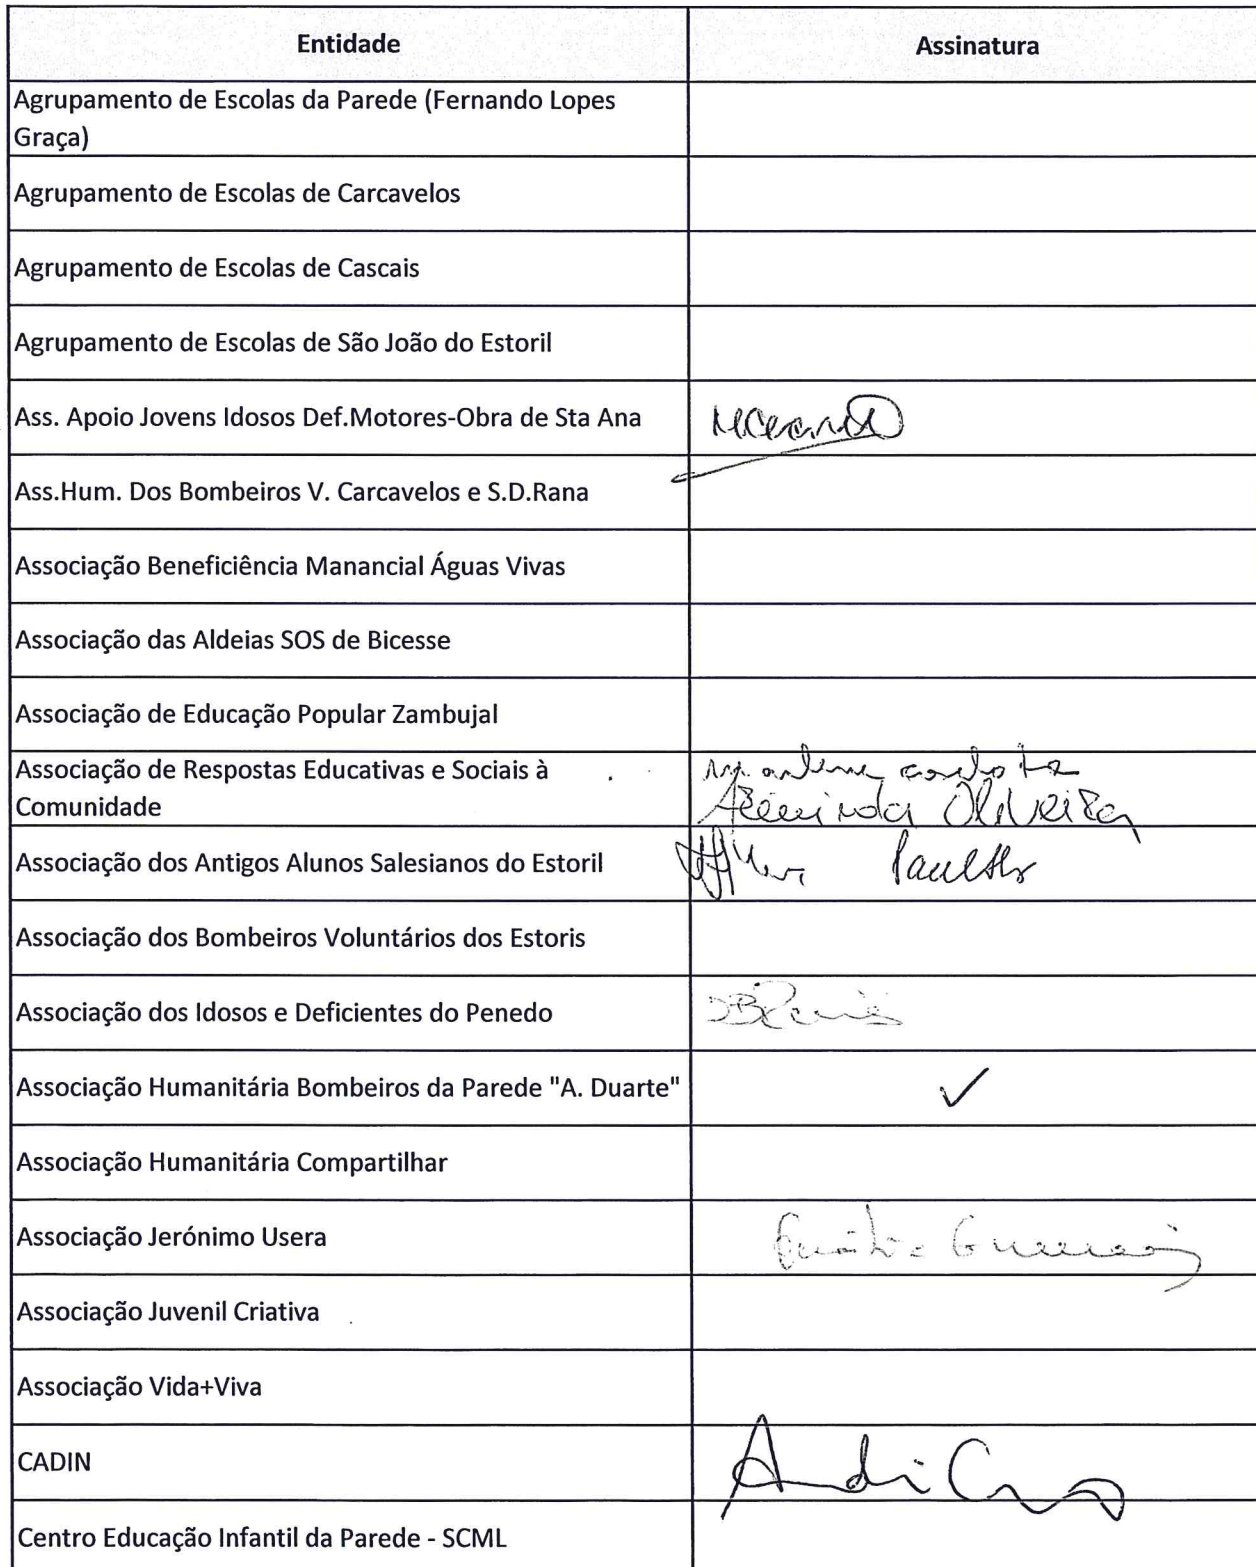 Entidade Assinatura
Agrupamento de Escolas da Parede (Fernando Lopes
Graça)
Agrupamento de Escolas de Carcavelos
Agrupamento de Escolas de Cascais
Agrupamento de Escolas de São João do Estoril
Ass. Apoio Jovens Idosos Def.Motores-Obra de Sta Ana
Ass.Hum. Dos Bombeiros V. Carcavelos e S.D.Rana
Associação Beneficiência Manancial Águas Vivas
Associação das Aldeias SOS de Bicesse
Associação de Educação Popular Zambujal
Associação de Respostas Educativas e Sociais à
Comunidade
Oliveira
Associação dos Antigos Alunos Salesianos do Estoril
Associação dos Bombeiros Voluntários dos Estoris
Associação dos Idosos e Deficientes do Penedo
Associação Humanitária Bombeiros da Parede "A. Duarte" ✓
Associação Humanitária Compartilhar
Associação Jerónimo Usera
Associação Juvenil Criativa
Associação Vida+Viva
CADIN
Centro Educação Infantil da Parede - SCML